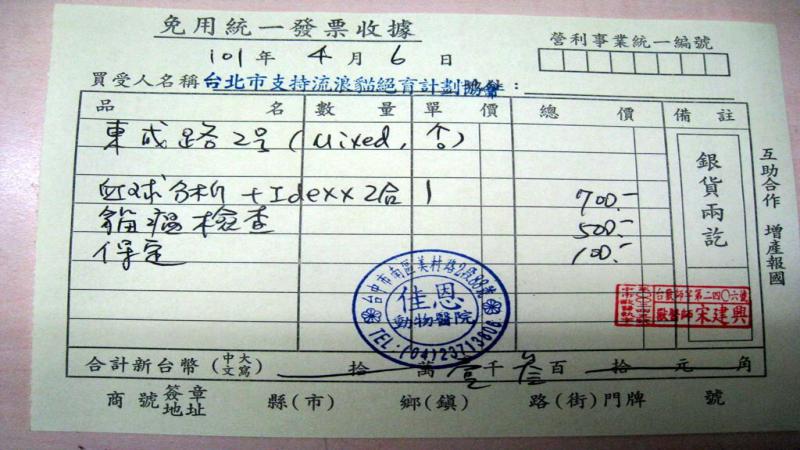 免用統一發票收據
101年 4月 6日
營利事業統一編號
買受人名稱 台北市支持流浪貓絕育計劃協會:
品名 數量 單價 總價 備註
東成路2号(Mixed,合)
血球分析+Idexx2合 1 700.-
貓瘟檢查 500.-
保定 100.-
銀貨兩訖
互助合作 增產報國
台中市南區美村路2段88號
佳恩
動物醫院
TEL:(04)23713808
台獸師字第二四〇六號
獸醫師 宋建興
合計新台幣(中文大寫) 拾 萬壹千叁百 拾 元 角
商號簽章地址 縣(市) 鄉(鎮) 路(街)門牌 號